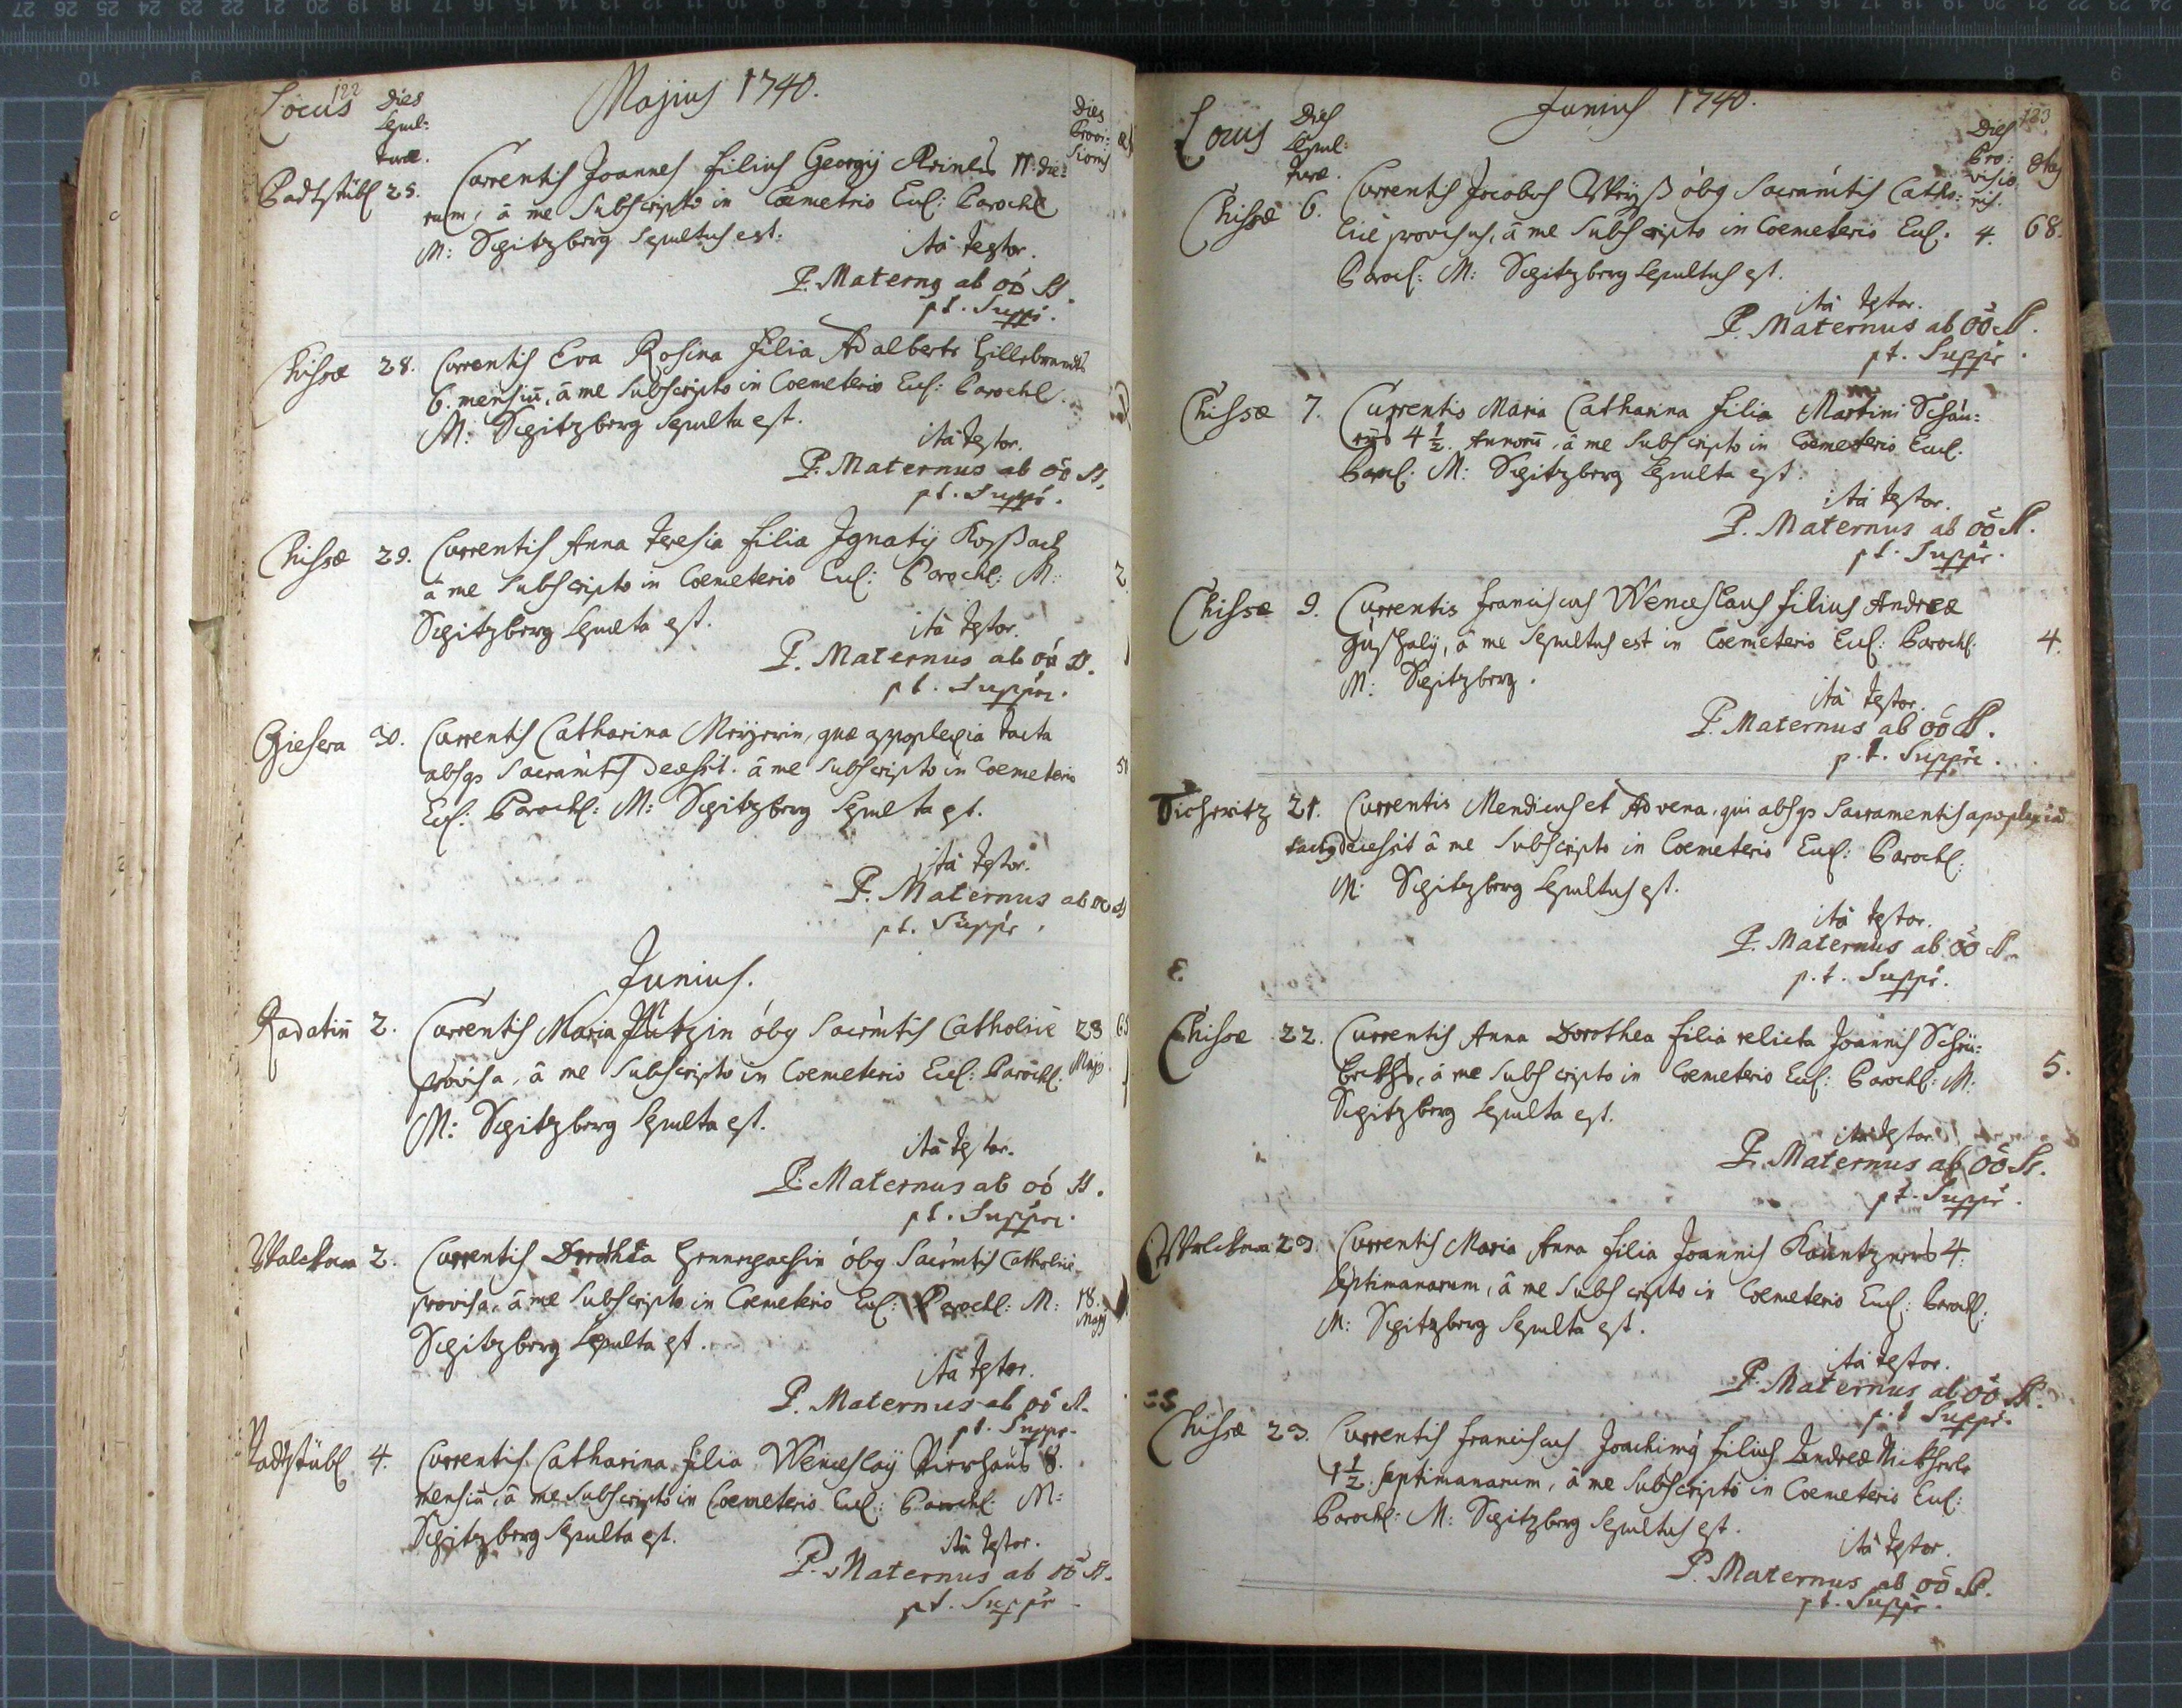 122
Locus
Dies
Sepul:
turæ.
Majus 1740.
Dies
Provi:
sionis
Badstübl 25. Currentis Joannes filius Georgij 11 die:
rum, â me Subscripto in Cæmeterio Eccl: Parochl
M: Schitzberg Sepultus est.
itâ testor.
P. Maternus ab oô SS.
pt. Suppr.
Chissæ 28. Currentis Eva Rosina filia Adalberti Hillebrandts
6. mensiu, â me Subscripto in Coemeterio Eccl: Parochl.
M: Schitzberg Sepulta est.
itâ testor.
P. Maternus ab oô SS.
pt. Suppr.
Chissæ 29. Currentis Anna Teresia filia Ignatij
â me Subscripto in Coemeterio Eccl: Parochl: M: 2
Schitzberg Sepulta est.
itâ testor.
P. Maternus ab oô SS.
pt. Suppr.
Giesera 30. Currentis Catharina Meyerin, quæ apoplexia tacta
absqs Sacramtis Decessit. â me Subscripto in Coemeterio
Eccl: Parochl: M: Schitzberg Sepulta est.
itâ testor.
P. Maternus ab oô SS
pt. Suppr.
Junius.
Radatin 2. Currentis Maria óbg Sacrmtis Catholice 28
provisa, â me Subscripto in Coemeterio Eccl: Parochl: Maji.
M: Schitzberg Sepulta est.
itâ testor.
P. Maternus ab oô SS.
pt. Suppr.
2. Currentis Dorothea óbg Sacrmtis Catholice
provisa, â me Subscripto in Coemeterio Eccl: Parochl: M: 18.
Maji
Schitzberg Sepulta est.
itâ testor.
P. Maternus ab oô SS.
pt. Suppr.
Badstübl 4. Currentis Catharina filia Wenceslai 8.
mensiu, â me Subscripto in Coemeterio Eccl: Parochl: M:
Schitzberg Sepulta est.
itâ testor.
P. Maternus ab oô SS.
pt. Suppr.
123
Locus
Dies
Sepul:
turæ.
Junius 1740.
Dies
Pro:
visio
nis.
Ætas
Chissæ 6. Currentis Jacobus óbg Sacramtis Catho:
lice provisus, â me Subscripto in Coemeterio Eccl: 4. 68.
Paroch: M: Schitzberg Sepultus est.
itâ testor.
P. Maternus ab oô SS.
pt. Suppr.
Chissæ 7. Currentis Maria Catharina filia Martini
4 1/2. Annoru, â me Subscripto in Coemeterio Eccl:
Parochl: M: Schitzberg Sepulta est.
itâ testor.
P. Maternus ab oô SS.
pt. Suppr.
Chissæ 9. Currentis Franciscus Wenceslaus filius Andreæ
â me Sepultus est in Coemeterio Eccl: Parochl: 4.
M: Schitzberg.
itâ testor.
P. Maternus ab oô SS.
p.t. Suppr.
21. Currentis Mendicus et Advena, qui absqs Sacramentis apoplexiâ
tactus Decessit â me Subscripto in Coemeterio Eccl: Parochl:
M: Schitzberg Sepultus est.
itâ testor.
P. Maternus ab oô SS.
p.t. Suppr.
Chissæ 22. Currentis Anna Dorothea filia relicta Joannis
â me Subscripto in Coemeterio Eccl: Parochl: M: 5.
Schitzberg Sepulta est.
itâ testor.
P. Maternus ab oô SS.
pt. Suppr.
23. Currentis Maria Anna filia Joannis 4.
Septimanarum, â me Subscripto in Coemeterio Eccl: Parochl:
M: Schitzberg Sepulta est.
itâ testor.
P. Maternus ab oô SS.
p.t Suppr.
Chissæ 23. Currentis Franciscus Joachimus filius Andreæ
1 1/2. Septimanarum, â me Subscripto in Coemeterio Eccl:
Parochl: M: Schitzberg Sepultus est.
itâ testor.
P. Maternus ab oô SS.
pt. Suppr.